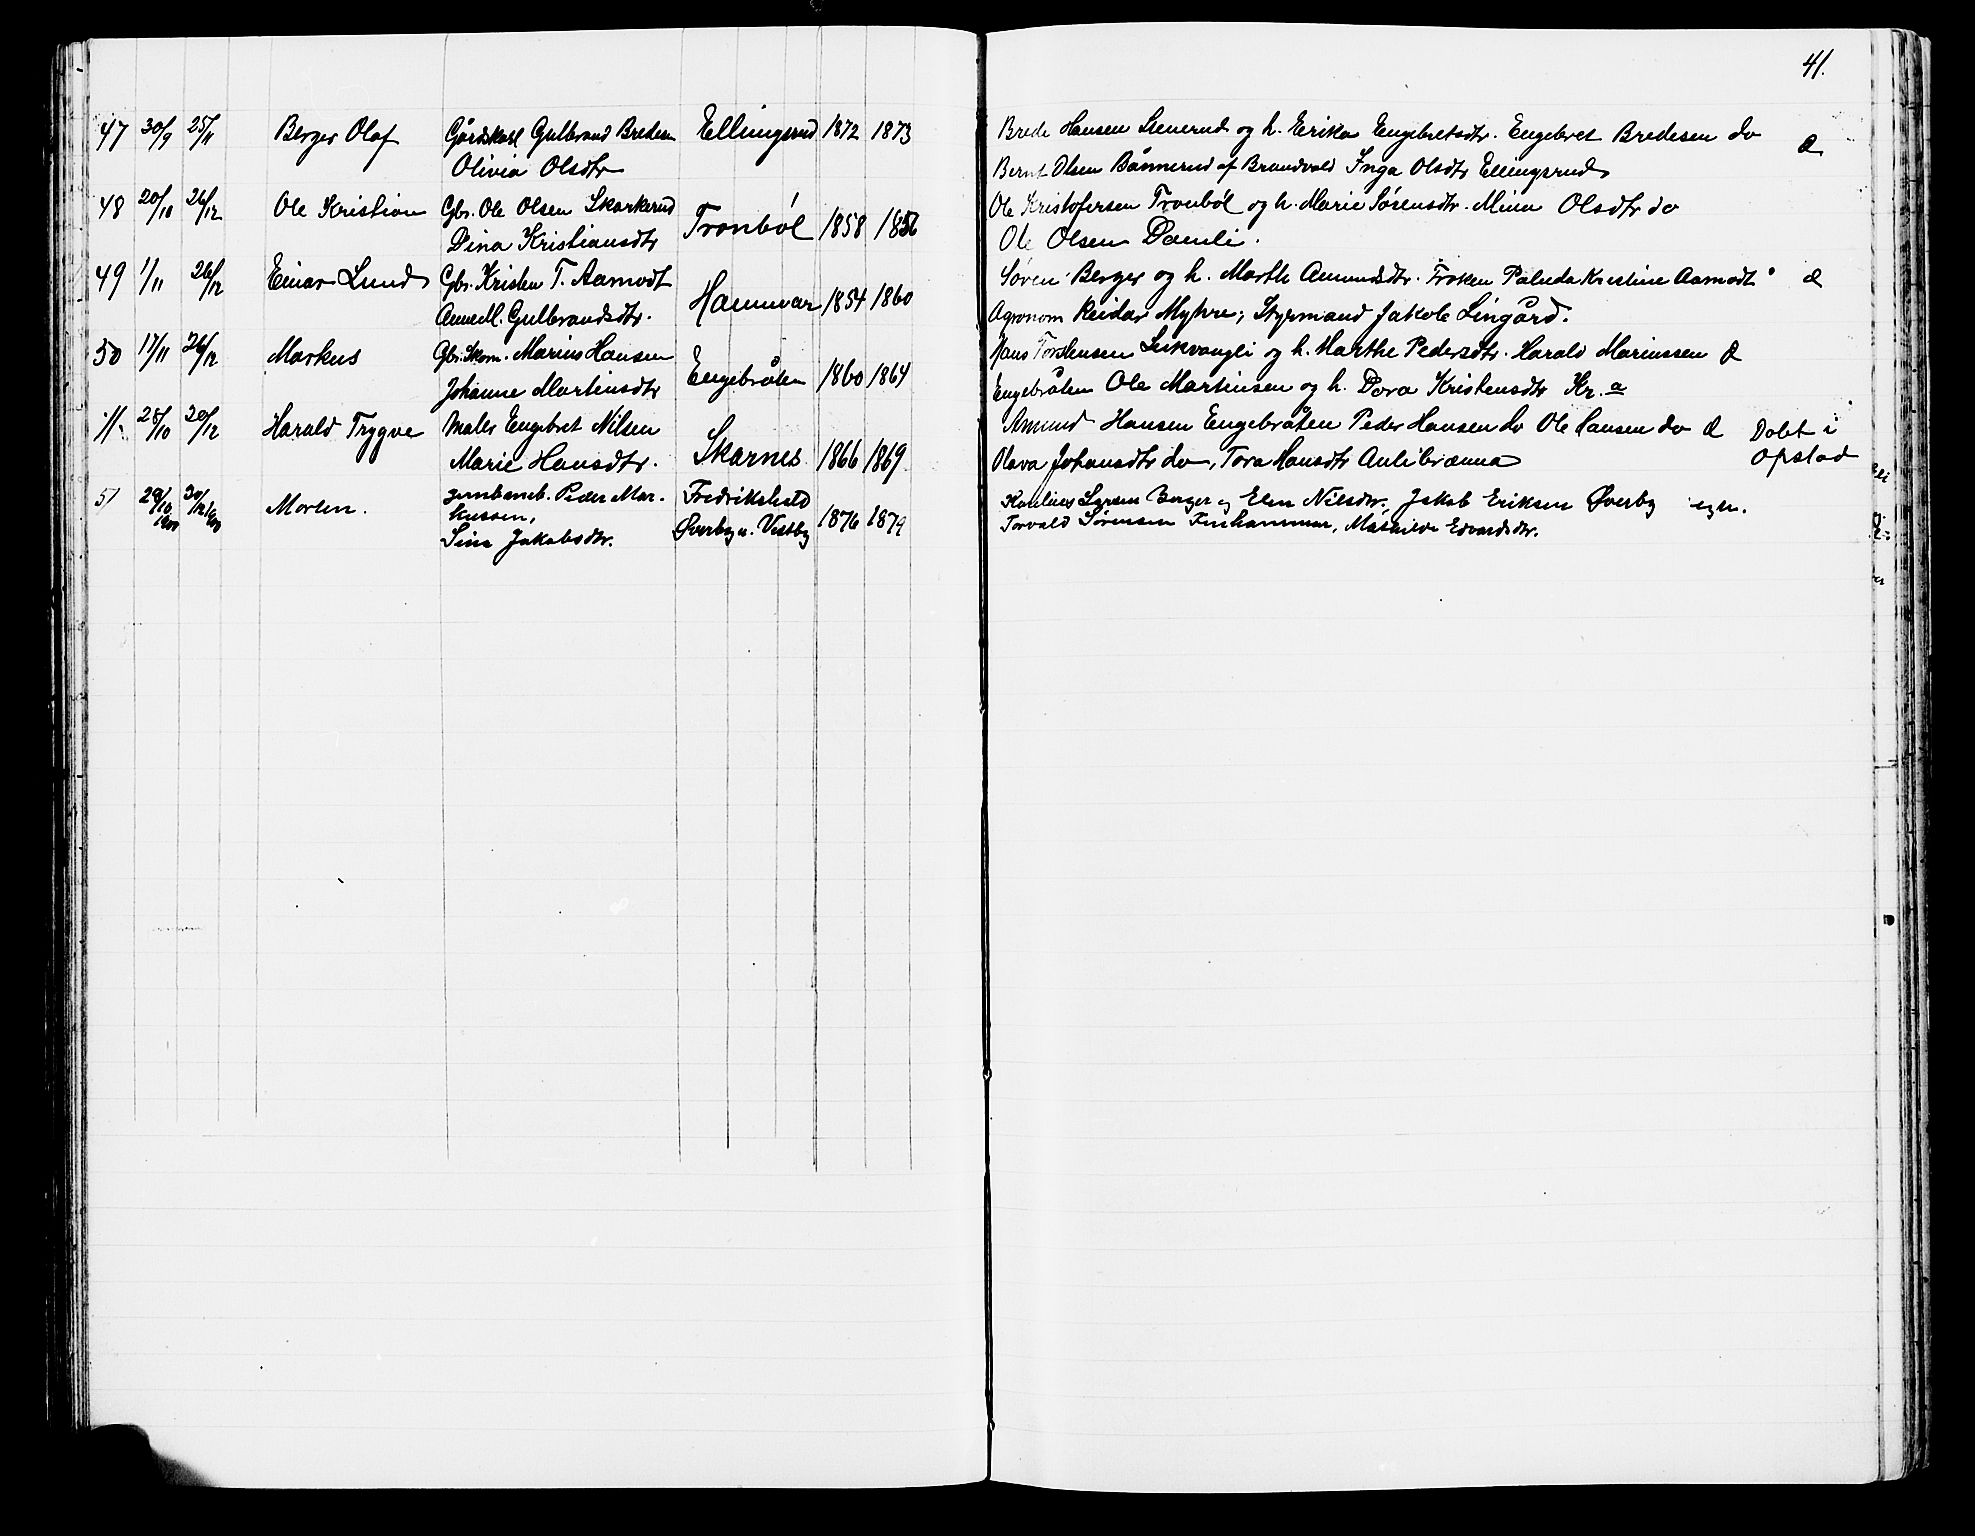 41.
47 30/9 25/11 Berger Olaf Gårdskarl Gulbrand Bredesen Ellingsrud 1872 1873 Brede Hansen og h. Erika Engebretsdtr. Engebret Bredesen do
Olivia Olsdtr Bernt Olsen Bånnerud af Brandvold Inga Olsdtr Ellingsrud
48 20/10 26/12 Ole Kristian Gbr. Ole Olsen Skarkerud Tronbøl 1858 1856 Ole Kristofersen Tronbøl og h. Marie Sørensdtr. Mina Olsdtr do
Dina Kristiansdtr Ole Olsen Damli.
49 1/11 26/12 Einar Lund Gbr. Kristen T. Aamodt Hammar 1854 1860 Søren Berger og h. Marthe Amundsdtr. Frøken Palmda Kristine Aamodt
AnneM. Gulbrandsdtr. Agronom Reidar Myhre; Styrmand Jakob Lingård.
50 17/11 26/12 Markus Gbr. Skom. Marius Hansen Engebråten 1860 1864 Hans Torstensen og h. Marthe Pedersdtr. Harald Mariussen
Johanne Martinsdtr Engebråten Ole Martinsen og h. Dora Kristensdtr Kr.a
11. 28/10 30/12 Harald Trygve Maler Engebret Nilsen Skarnes 1866 1869 Amund Hansen Engebråten Peder Hansen do Ole Hansen do Døbt i
Marie Hansdtr. Olava Johansdtr do, Tora Hansdtr Aulibrænna Opstad
51 29/10 1900 30/12 1900 Morten. Jernbaneb. Peder Mar- Fredrikshald 1876 1879 Karelius Syrsen Berger og Elen Nilsdtr., Jakob Eriksen Øverby egn.
kussen, Øverby u. Vestby Torvald Sørensen Finhammer, Mathilde Edvardsdtr.
Sina Jakobsdtr.